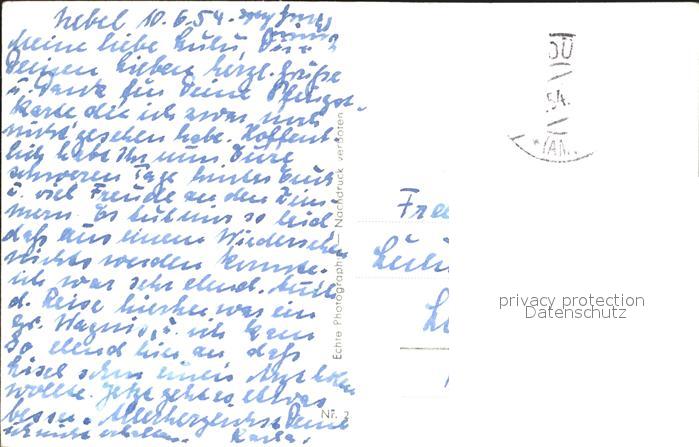 Nebel 10.6.54.
Meine liebe Lulu, Dir u.
Deinen Lieben herzl. Grüße
u. Dank für Deine Pfingst-
karte die ich zwar noch
nicht gesehen habe. Hoffent-
lich habt Ihr nun Eure
schweren Tage hinter Euch
u. viel Freude an den Zim-
mern. Es tut mir so leid
daß aus einem Wiedersehen
nichts werden konnte.
ich war sehr elend. Auch
d. Reise hierher war ein
gr. Wagnis, u. ich kam
so elend hier an daß
Lisel schon einen Arzt holen
wollte. Jetzt geht es etwas
besser. Allerherzlichst Deine
Karla.
Echte Photographie — Nachdruck verboten
Nr. 2
Lulu
54.
privacy protection
Datenschutz